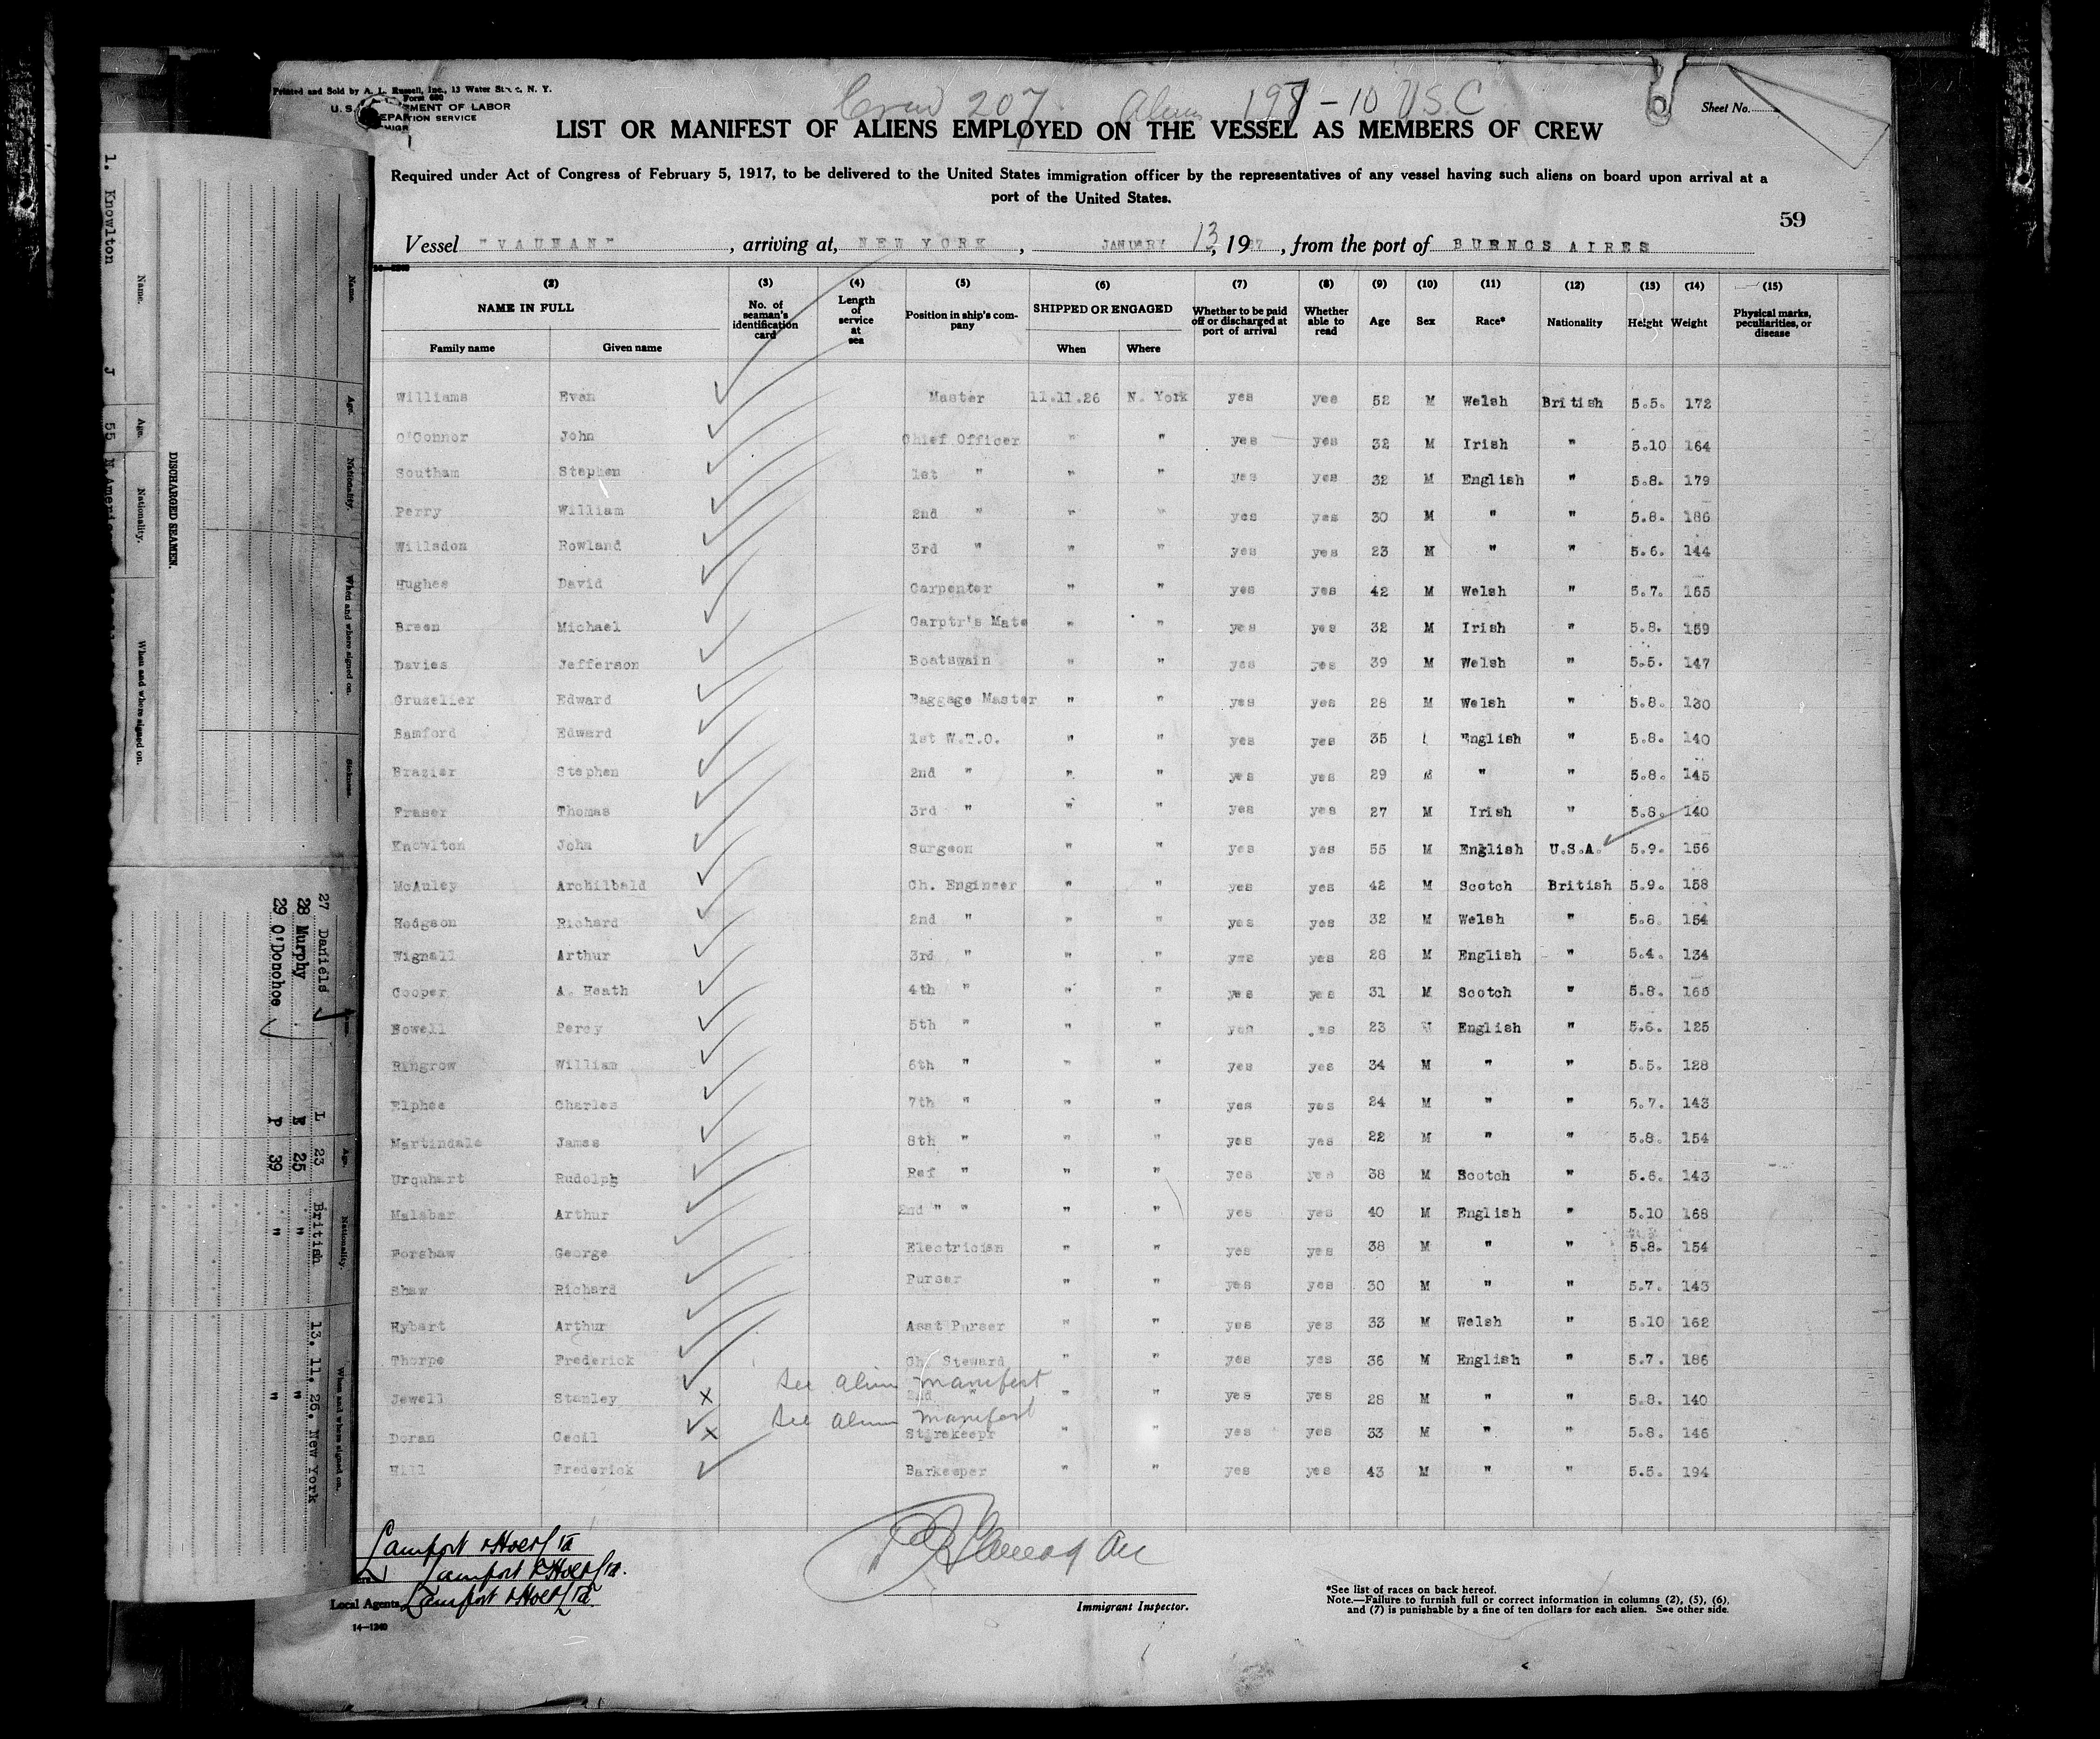 Printed and Sold by A. L. Russell, Inc., 13 Water St., N. Y.
Form 680
U. S. DEPARTMENT OF LABOR
IMMIGRATION SERVICE
Crew 207 Aliens 197 - 10 USC
Sheet No.
LIST OR MANIFEST OF ALIENS EMPLOYED ON THE VESSEL AS MEMBERS OF CREW
Required under Act of Congress of February 5, 1917, to be delivered to the United States immigration officer by the representatives of any vessel having such aliens on board upon arrival at a
port of the United States.
59
Vessel "VAUHAN", arriving at, NEW YORK, JANUARY 13, 1927, from the port of BUENOS AIRES
(2) (3) (4) (5) (6) (7) (8) (9) (10) (11) (12) (13) (14) (15)
NAME IN FULL No. of seaman's identification card Length of service at sea Position in ship's company SHIPPED OR ENGAGED Whether to be paid off or discharged at port of arrival Whether able to read Age Sex Race* Nationality Height Weight Physical marks, peculiarities, or disease
Family name Given name When Where
Williams Evan Master 11.11.26 N. York yes yes 52 M Welsh British 5.5. 172
O'Connor John Chief Officer " " yes yes 32 M Irish " 5.10 164
Southam Stephen 1st " " " yes yes 32 M English " 5.8. 179
Perry William 2nd " " " yes yes 30 M " " 5.8. 186
Willsdon Rowland 3rd " " " yes yes 23 M " " 5.6. 144
Hughes David Carpenter " " yes yes 42 M Welsh " 5.7. 165
Breen Michael Carptr's Mate " " yes yes 32 M Irish " 5.8. 159
Davies Jefferson Boatswain " " yes yes 39 M Welsh " 5.5. 147
Gruzelier Edward Baggage Master " " yes yes 28 M Welsh " 5.8. 130
Bamford Edward 1st W.T.O. " " yes yes 35 English " 5.8. 140
Brazier Stephen 2nd " " " yes yes 29 M " " 5.8. 145
Fraser Thomas 3rd " " " yes yes 27 M Irish " 5.8. 140
Knowlton John Surgeon " " yes yes 55 M English U.S.A. 5.9. 156
McAuley Archilbald Ch. Engineer " " yes yes 42 M Scotch British 5.9. 158
Hodgson Richard 2nd " " " yes yes 32 M Welsh " 5.8. 154
Wignall Arthur 3rd " " " yes yes 28 M English " 5.4. 134
Cooper A. Heath 4th " " " yes yes 31 M Scotch " 5.8. 165
Bowell Percy 5th " " " yes yes 23 M English " 5.6. 125
Ringrow William 6th " " " yes yes 34 M " " 5.5. 128
Elphee Charles 7th " " " yes yes 24 M " " 5.7. 143
Martindale James 8th " " " yes yes 22 M " " 5.8. 154
Urquhart Rudolph Ref " " " yes yes 38 M Scotch " 5.6. 143
Malabar Arthur 2nd " " " " yes yes 40 M English " 5.10 168
Forshaw George Electrician " " yes yes 38 M " " 5.8. 154
Shaw Richard Purser " " yes yes 30 M " " 5.7. 143
Hybart Arthur Asst Purser " " yes yes 33 M Welsh " 5.10 162
Thorpe Frederick Ch. Steward " " yes yes 36 M English " 5.7. 186
Jewell Stanley x See alien manifest 2nd " " " yes yes 28 M " " 5.8. 140
Doran Cecil x See alien manifest Storekeepr " " yes yes 33 M " " 5.8. 146
Hill Frederick Barkeeper " " yes yes 43 M " " 5.5. 194
Lamport & Holt Ltd
Lamport & Holt Ltd.
Local Agents Lamport & Holt Ltd
Immigrant Inspector.
*See list of races on back hereof.
Note.—Failure to furnish full or correct information in columns (2), (5), (6),
and (7) is punishable by a fine of ten dollars for each alien. See other side.
14—1240
Name. Age. Nationality. When and where signed on. Sickness.
DISCHARGED SEAMEN.
Name. Age. Nationality. When and where signed on.
1. Knowlton J 55 N.America
Name. Age. Nationality. When and where signed on.
27 Daniels L 23 British 13. 11. 26. New York
28 Murphy 25 " "
29 O'Donohoe P 39 " "